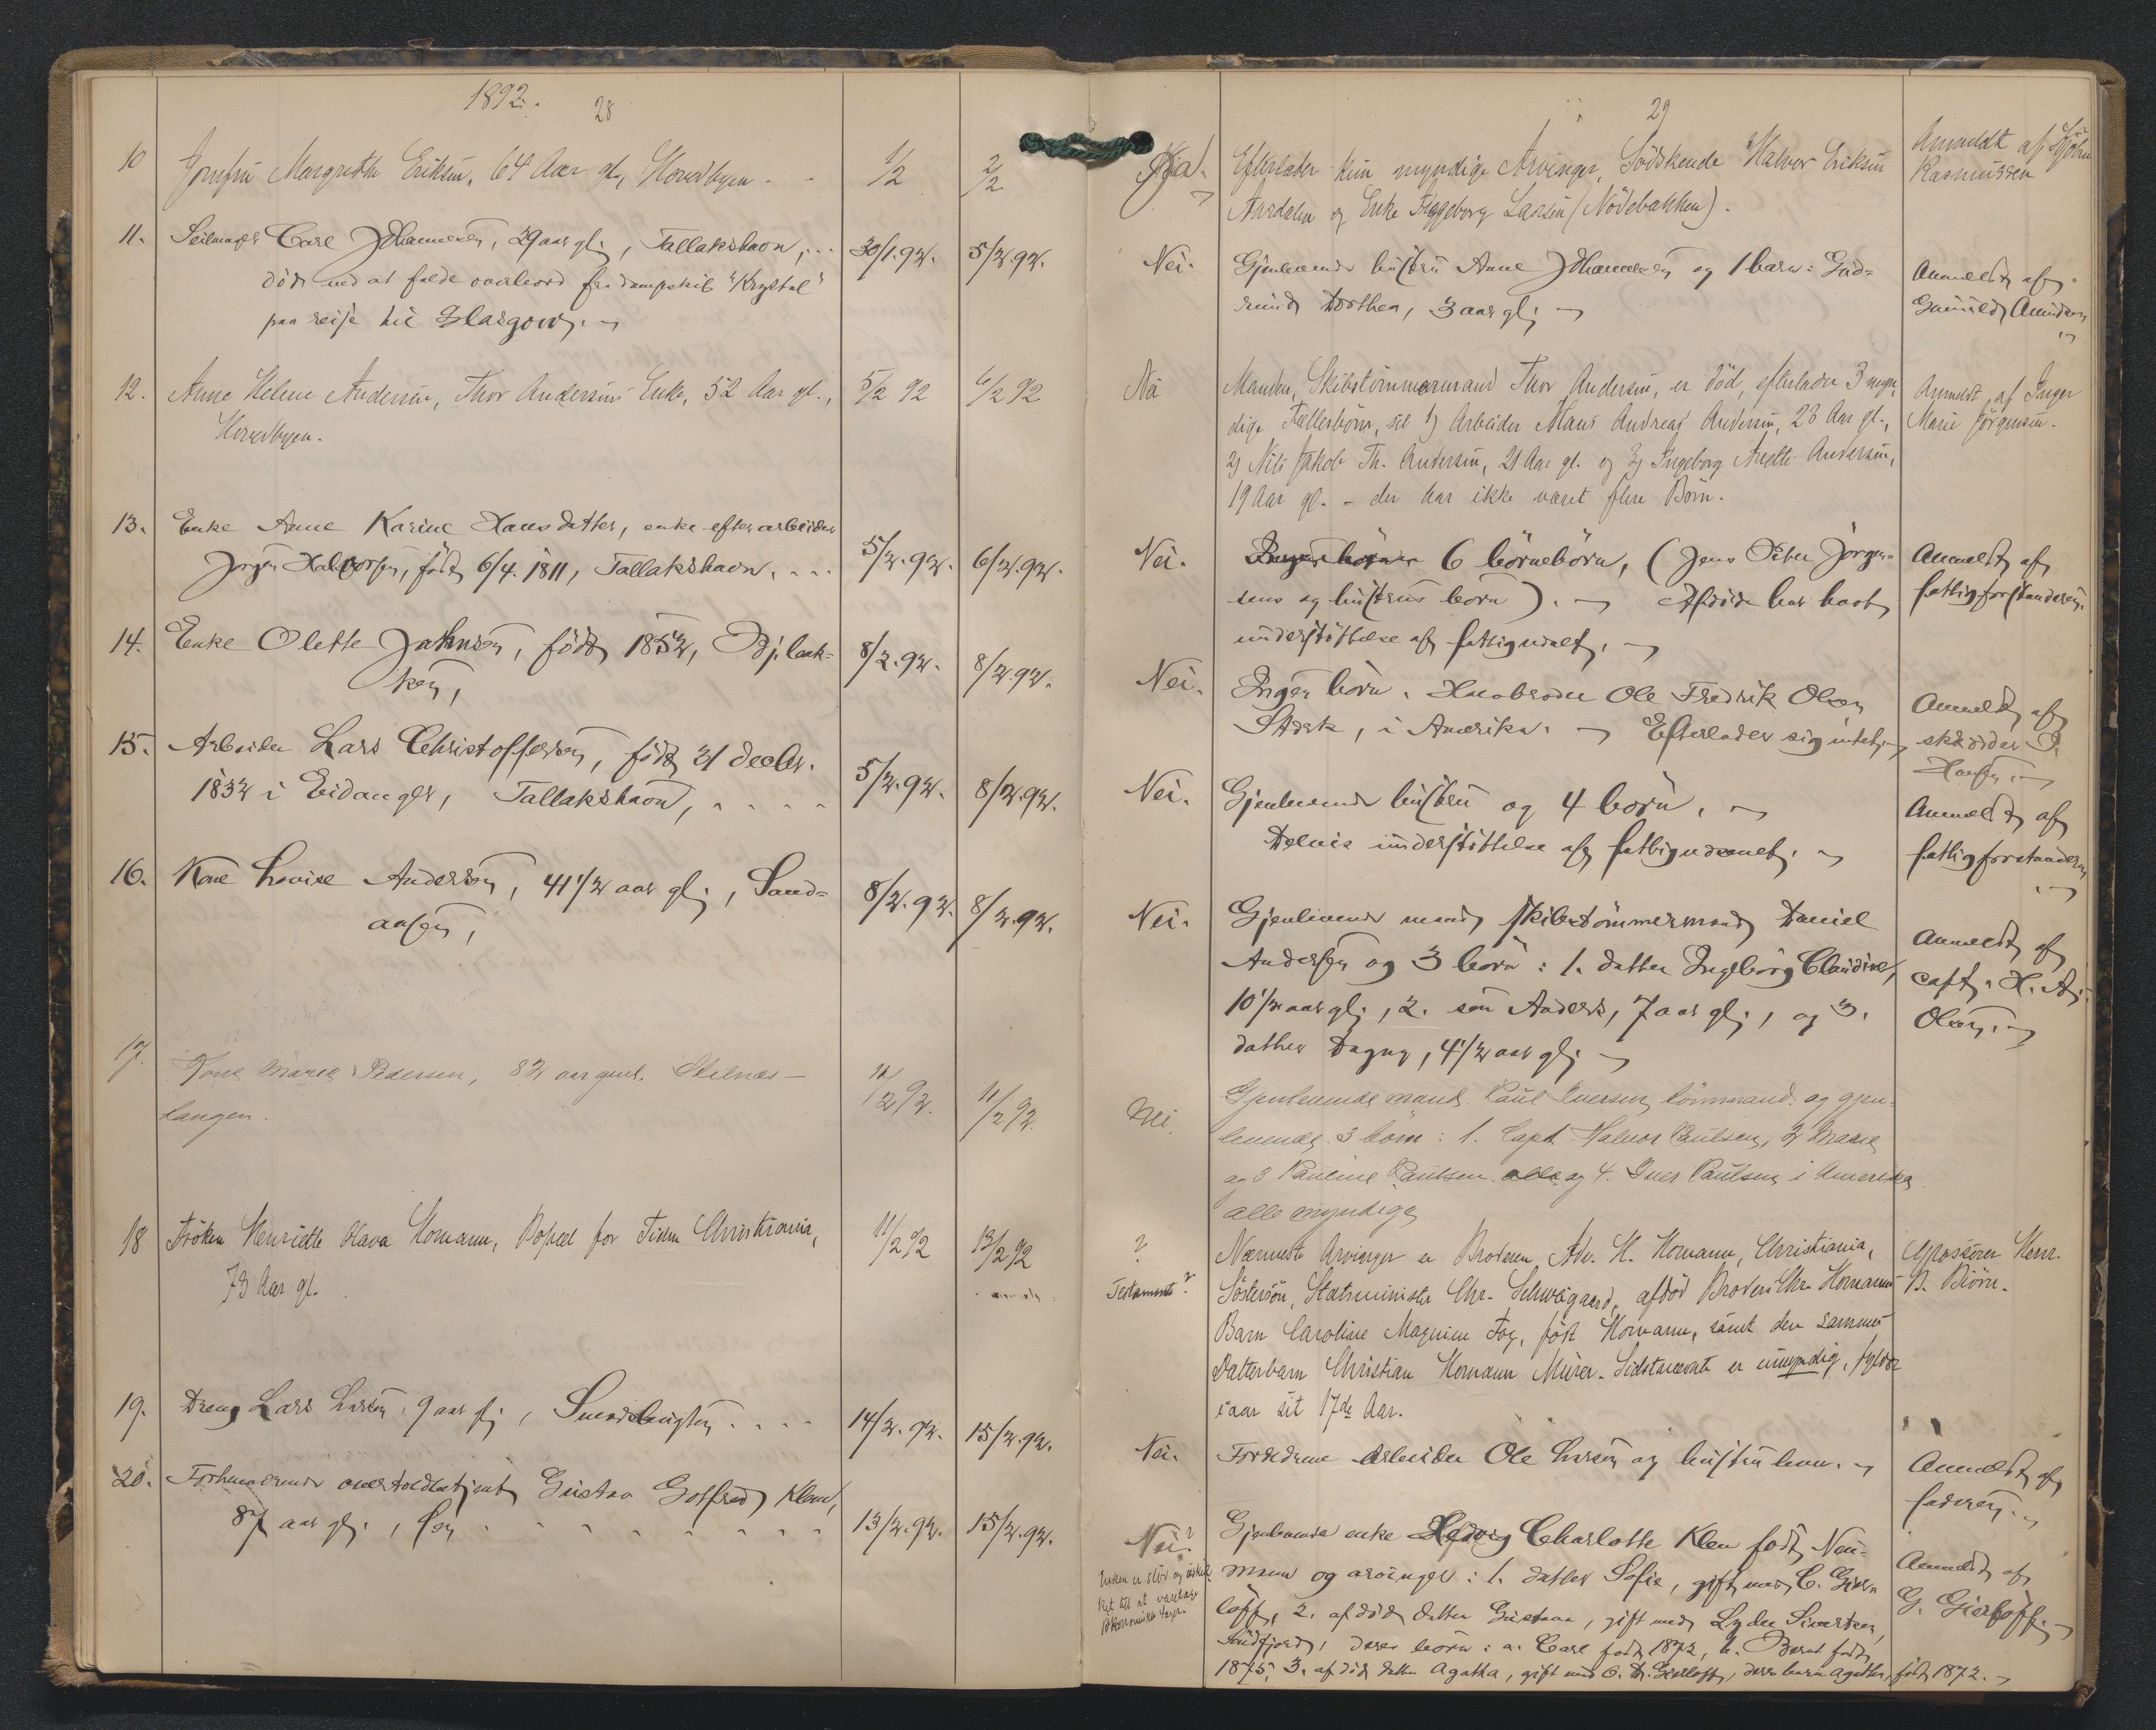 1892.
28
10 Jomfru Margrethe Eriksen, 64 Aar gl., Hovedbyen - - 1/2 2/2
11. Seilmager Carl Johannesen, 29 aar gl., Tallakshavn, .. 30/1.92. 5/2.92.
døde ved at falde overbord fra dampskib "Krystal"
paa reise til Glasgow.
12. Anne Helene Andersen, Thor Andersens Enke, 52 Aar gl., 5/2 92 6/2 92
Hovedbyen.
13. Enke Anne Karine Hansdatter, enke efter arbeider
Jørgen Halvorsen, født 6/4. 1811, Tallakshavn, ... 5/2.92. 6/2.92.
14. Enke Olette Johnsen, født 1852, 8/2.92. 8/2.92.
ken,
15. Arbeider Lars Christoffersen, født 21 decbr.
1832 i Eidanger, Tallakshavn, . . . . 5/2.92. 8/2.92.
16. Kone Lovise Andersen, 41 1/2 aar gl., Sand-
aasen, 8/2.92. 8/2.92.
17. Kone Maren Pedersen, 82 aar gml. Stilnæs- 11/2 92. 11/2 92.
tangen.
18 Frøken Henriette Olava Homann, Bopæl for Tiden Christiania, 11/2 92 13/2 92
73 Aar gl.
19. Dreng Lars Larsen, 9 aar gl., . . . . 14/2.92. 15/2.92.
20. Forhenværende overtoldbetjent Gustav Gotfred Klem,
87 aar gl., 13/2.92. 15/2.92.
29
Nei. Efterlader kun myndige Arvinger, Södskende Halvor Eriksen Anmeldt af
og Enke Ingeborg Larsen (Nödebakken). Rasmussen
Nei. Gjenlevende hustru Anne Johannesen og 1 barn: Gud- Anmeldt af
rund Dorthea, 3 aar gl.
Nei Manden, Skibstömmermand Thor Andersen, er död, efterlader 3 myn- Anmeldt af Inger
dige Fællesbörn, 1) Arbeider Hans Andreas Andersen, 23 Aar gl., Marie Jörgensen.
2) Nils Jakob Th. Andersen, 21 Aar gl. og 3) Ingeborg Andersen,
19 Aar gl. - der har ikke været flere Börn.
Nei. Ingen börn 6 börnebörn, (Jens Peter Jörgen- Anmeldt af
sens og hustrus börn). Afdöde har havt fattigforstanderen.
understöttelse af
Nei. Ingen börn. Halvbroder Ole Fredrik Olsen Anmeldt af
i Amerika. Efterlader sig intet. skrædder
Hansen.
Nei. Gjenlevende hustru og 4 börn. Anmeldt af
Delvis understöttelse af fattigvæsenet. fattigforstanderen
Nei. Gjenlevende mand skibstömmermand Daniel Anmeldt af
Andersen og 3 börn: 1. datter Ingeborg Claudine, capt. H. A.
10 1/2 aar gl., 2. sön Anders, 7 aar gl., og 3. Olsen.
datter Dagny, 4 1/2 aar gl.
Nei. Gjenlevende mand Paul Iversen tömmand. og gjen-
levende 3 börn: 1. Capt Halvor Paulsen, 2 Maren
og 3 Pauline Paulsen. alle og 4. Iver Paulsen i Amerika
alle myndige
? Nærmeste Arvinger er Broderen Adv. H. Homann, Christiania, Grosserer Henr.
Testamente? Söstersön, Statsminister Chr. Schweigaard, afdöd Broder Chr. Homanns B. Biörn.
Barn Caroline Magnine Fog, født Homann, samt den sammes
Datterbarn Christian Homann Mürer. Sidstnævnte er umyndig, fylder
iaar sit 17de Aar.
Nei. Forældrene arbeider Ole Larsen og hustru leve. Anmeldt af
faderen.
Nei? Gjenlevende enke Hedvig Charlotte Klem født Neu- Anmeldt af
mann og arvinger: 1. datter Sofie, gift med C. Gier- G. Gierløff.
Enken er slöv og
ket til at varetage
ökonomiske Sager.
løff, 2. afdöd datter Gustava, gift med Lyder Sivertsen,
deres börn: a. Carl født 1872, b. Bernt født
1875, 3. afdöd datter Agatha, gift med C. Gierløff, deres barn Agatha, født 1872.